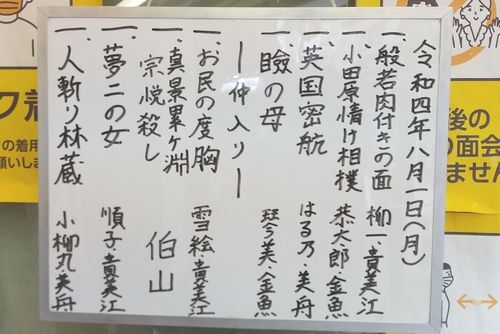 令和四年八月一日(月)
一、般若肉付きの面 柳一・貴美江
一、小田原情け相撲 恭太郎・金魚
一、英国密航 はる乃・美舟
一、瞼の母 琴美・金魚
ー仲入りー
一、お民の度胸 雪絵・貴美江
一、真景累ヶ淵
宗悦殺し 伯山
一、夢二の女 順子・貴美江
一、人斬り林蔵 小柳丸・美舟
後の
の面会
ません
の着用
願いしま